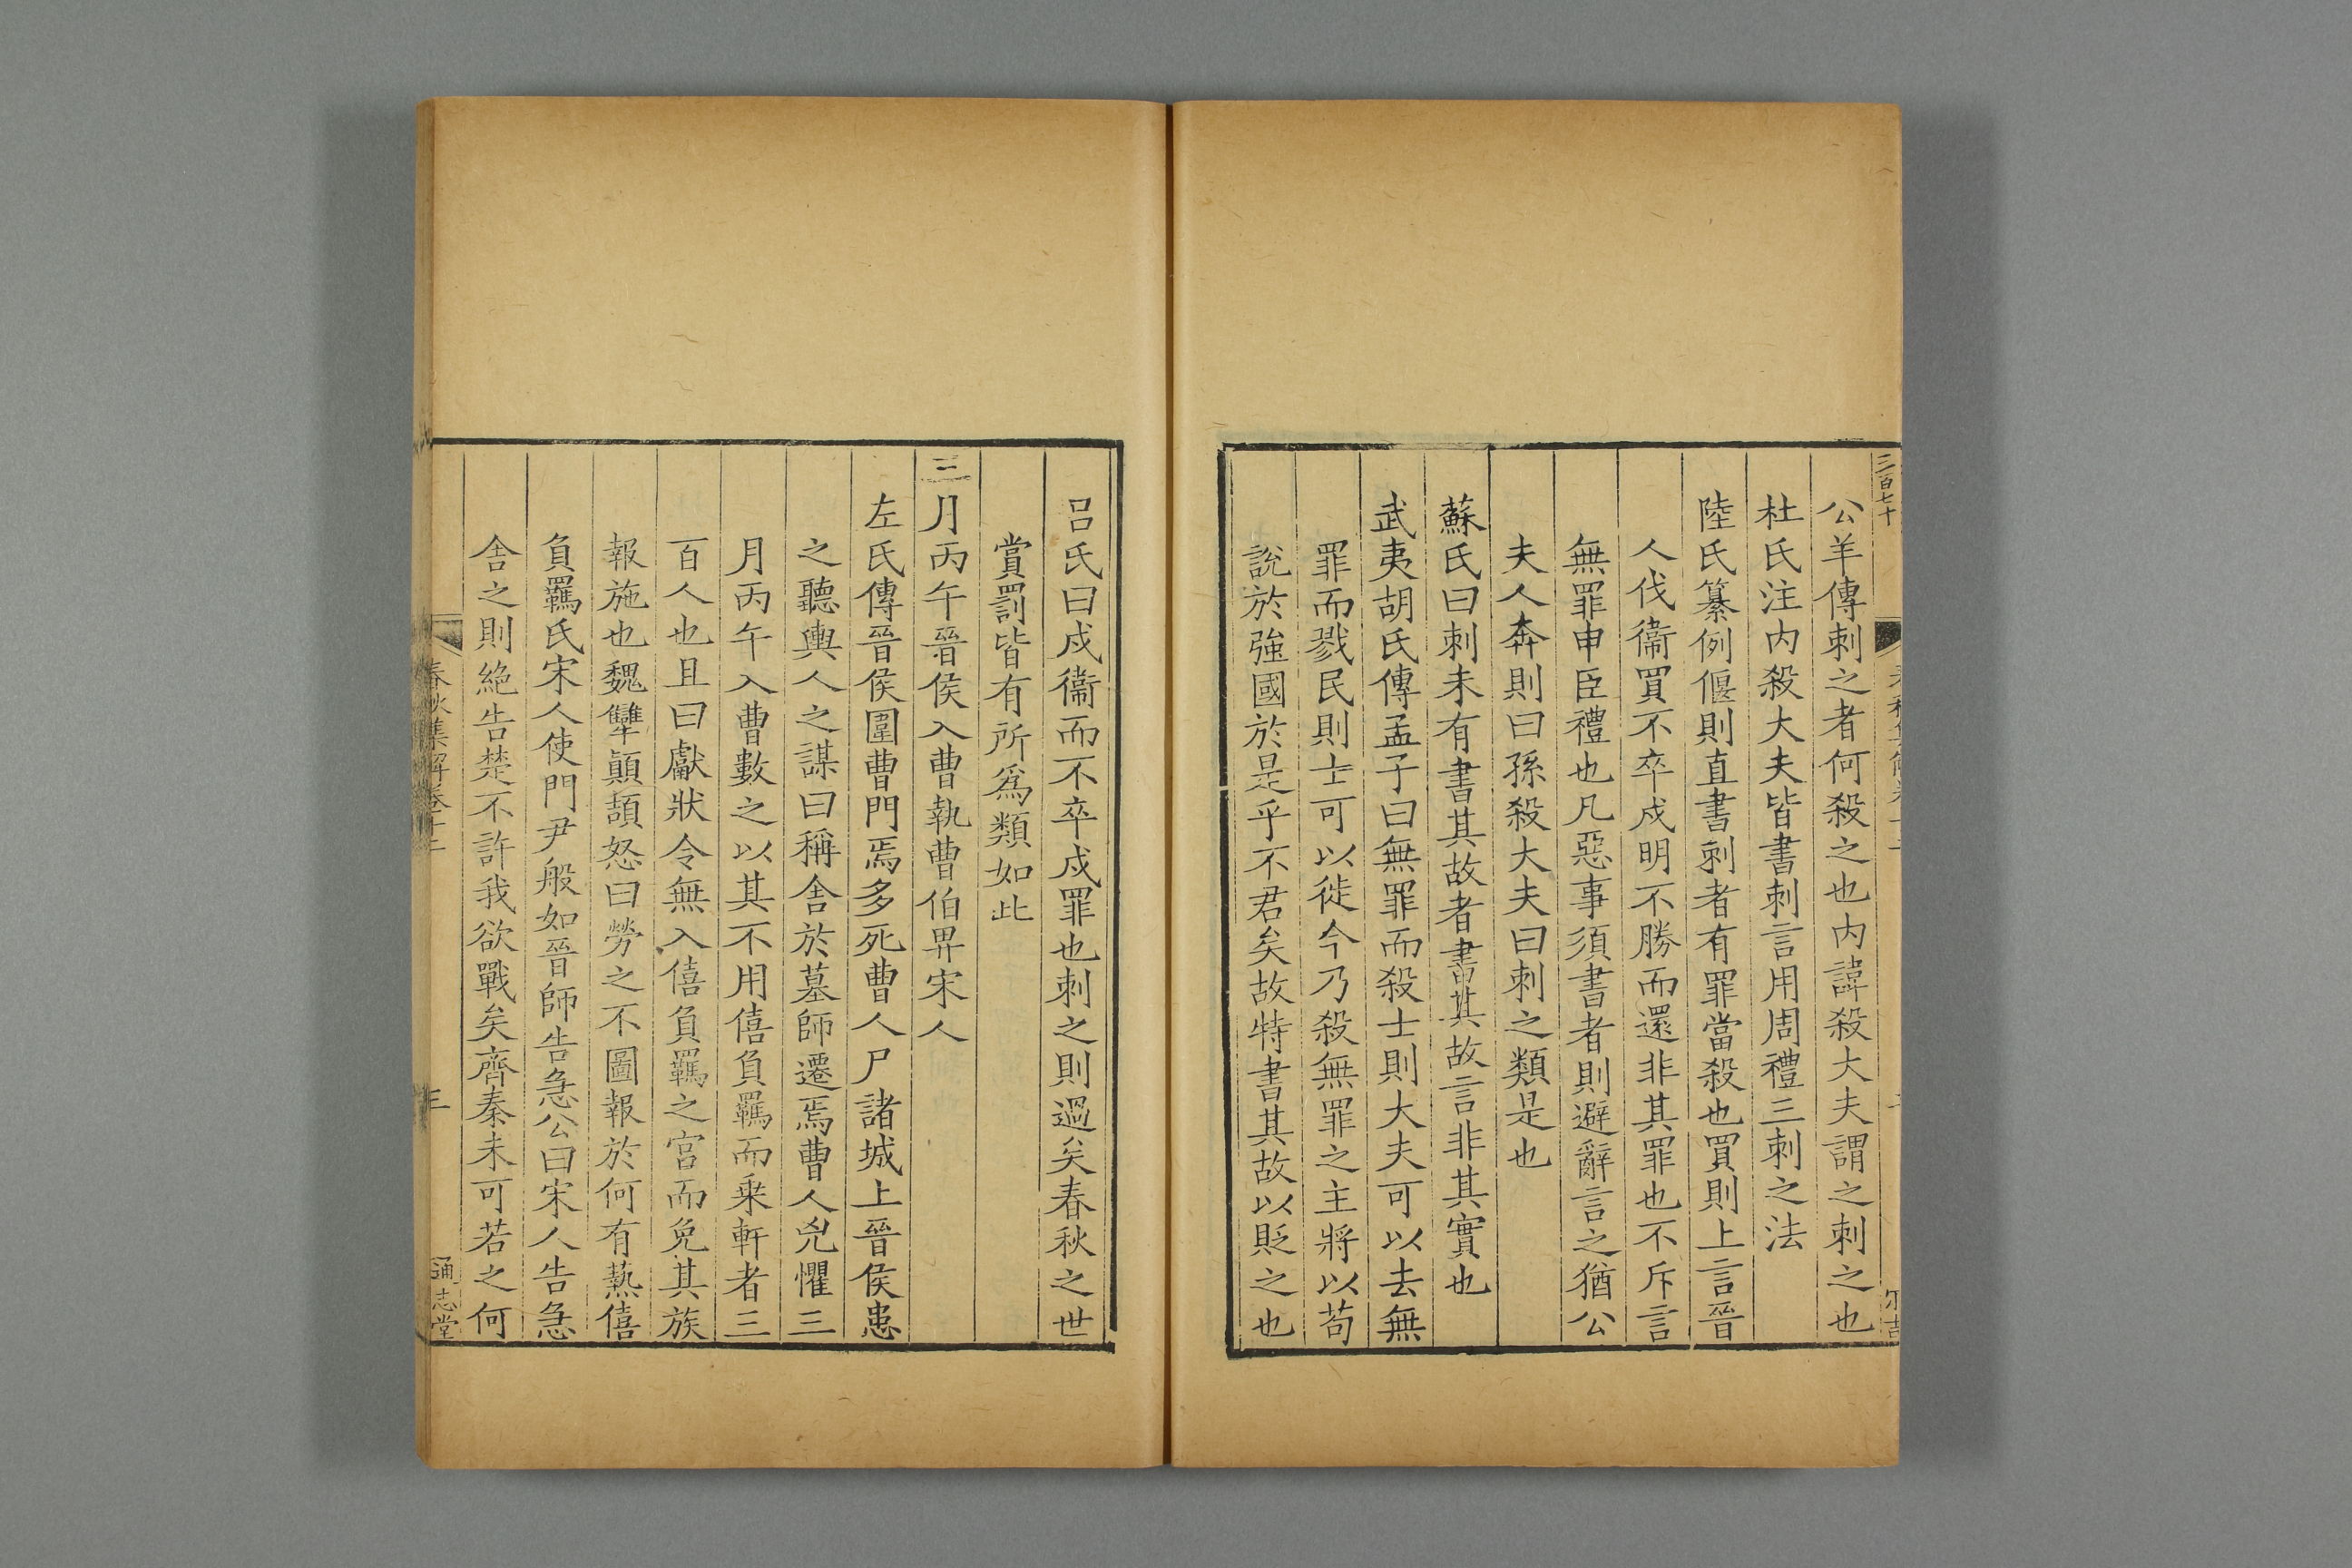 三百七十
公羊傳刺之者何殺之也内諱殺大夫謂之刺之也
杜氏注内殺大夫皆書刺言用周禮三刺之法
陸氏纂例偃則直書刺者有罪當殺也買則上言晉
人伐衞買不卒戍明不勝而還非其罪也不斥言
無罪申臣禮也凡惡事須書者則避辭言之猶公
夫人奔則曰孫殺大夫曰刺之類是也
蘇氏曰刺未有書其故者書其故言非其實也
武夷胡氏傳孟子曰無罪而殺士則大夫可以去無
罪而戮民則士可以徙今乃殺無罪之主將以苟
說於強國於是乎不君矣故特書其故以貶之也
吕氏曰戍衞而不卒戍罪也刺之則過矣春秋之世
賞罰皆有所爲類如此
三月丙午晉侯入曹執曹伯畀宋人
左氏傳晉侯圍曹門焉多死曹人尸諸城上晉侯患
之聽輿人之謀曰稱舍於墓師遷焉曹人兇懼三
月丙午入曹數之以其不用僖負羈而乗軒者三
百人也且曰獻狀令無入僖負羈之宫而免其族
報施也魏犫顛頡怒曰勞之不圖報於何有爇僖
負羈氏宋人使門尹般如晉師告急公曰宋人告急
舍之則絶告楚不許我欲戰矣齊秦未可若之何
春秋集解卷十二
三
通志堂